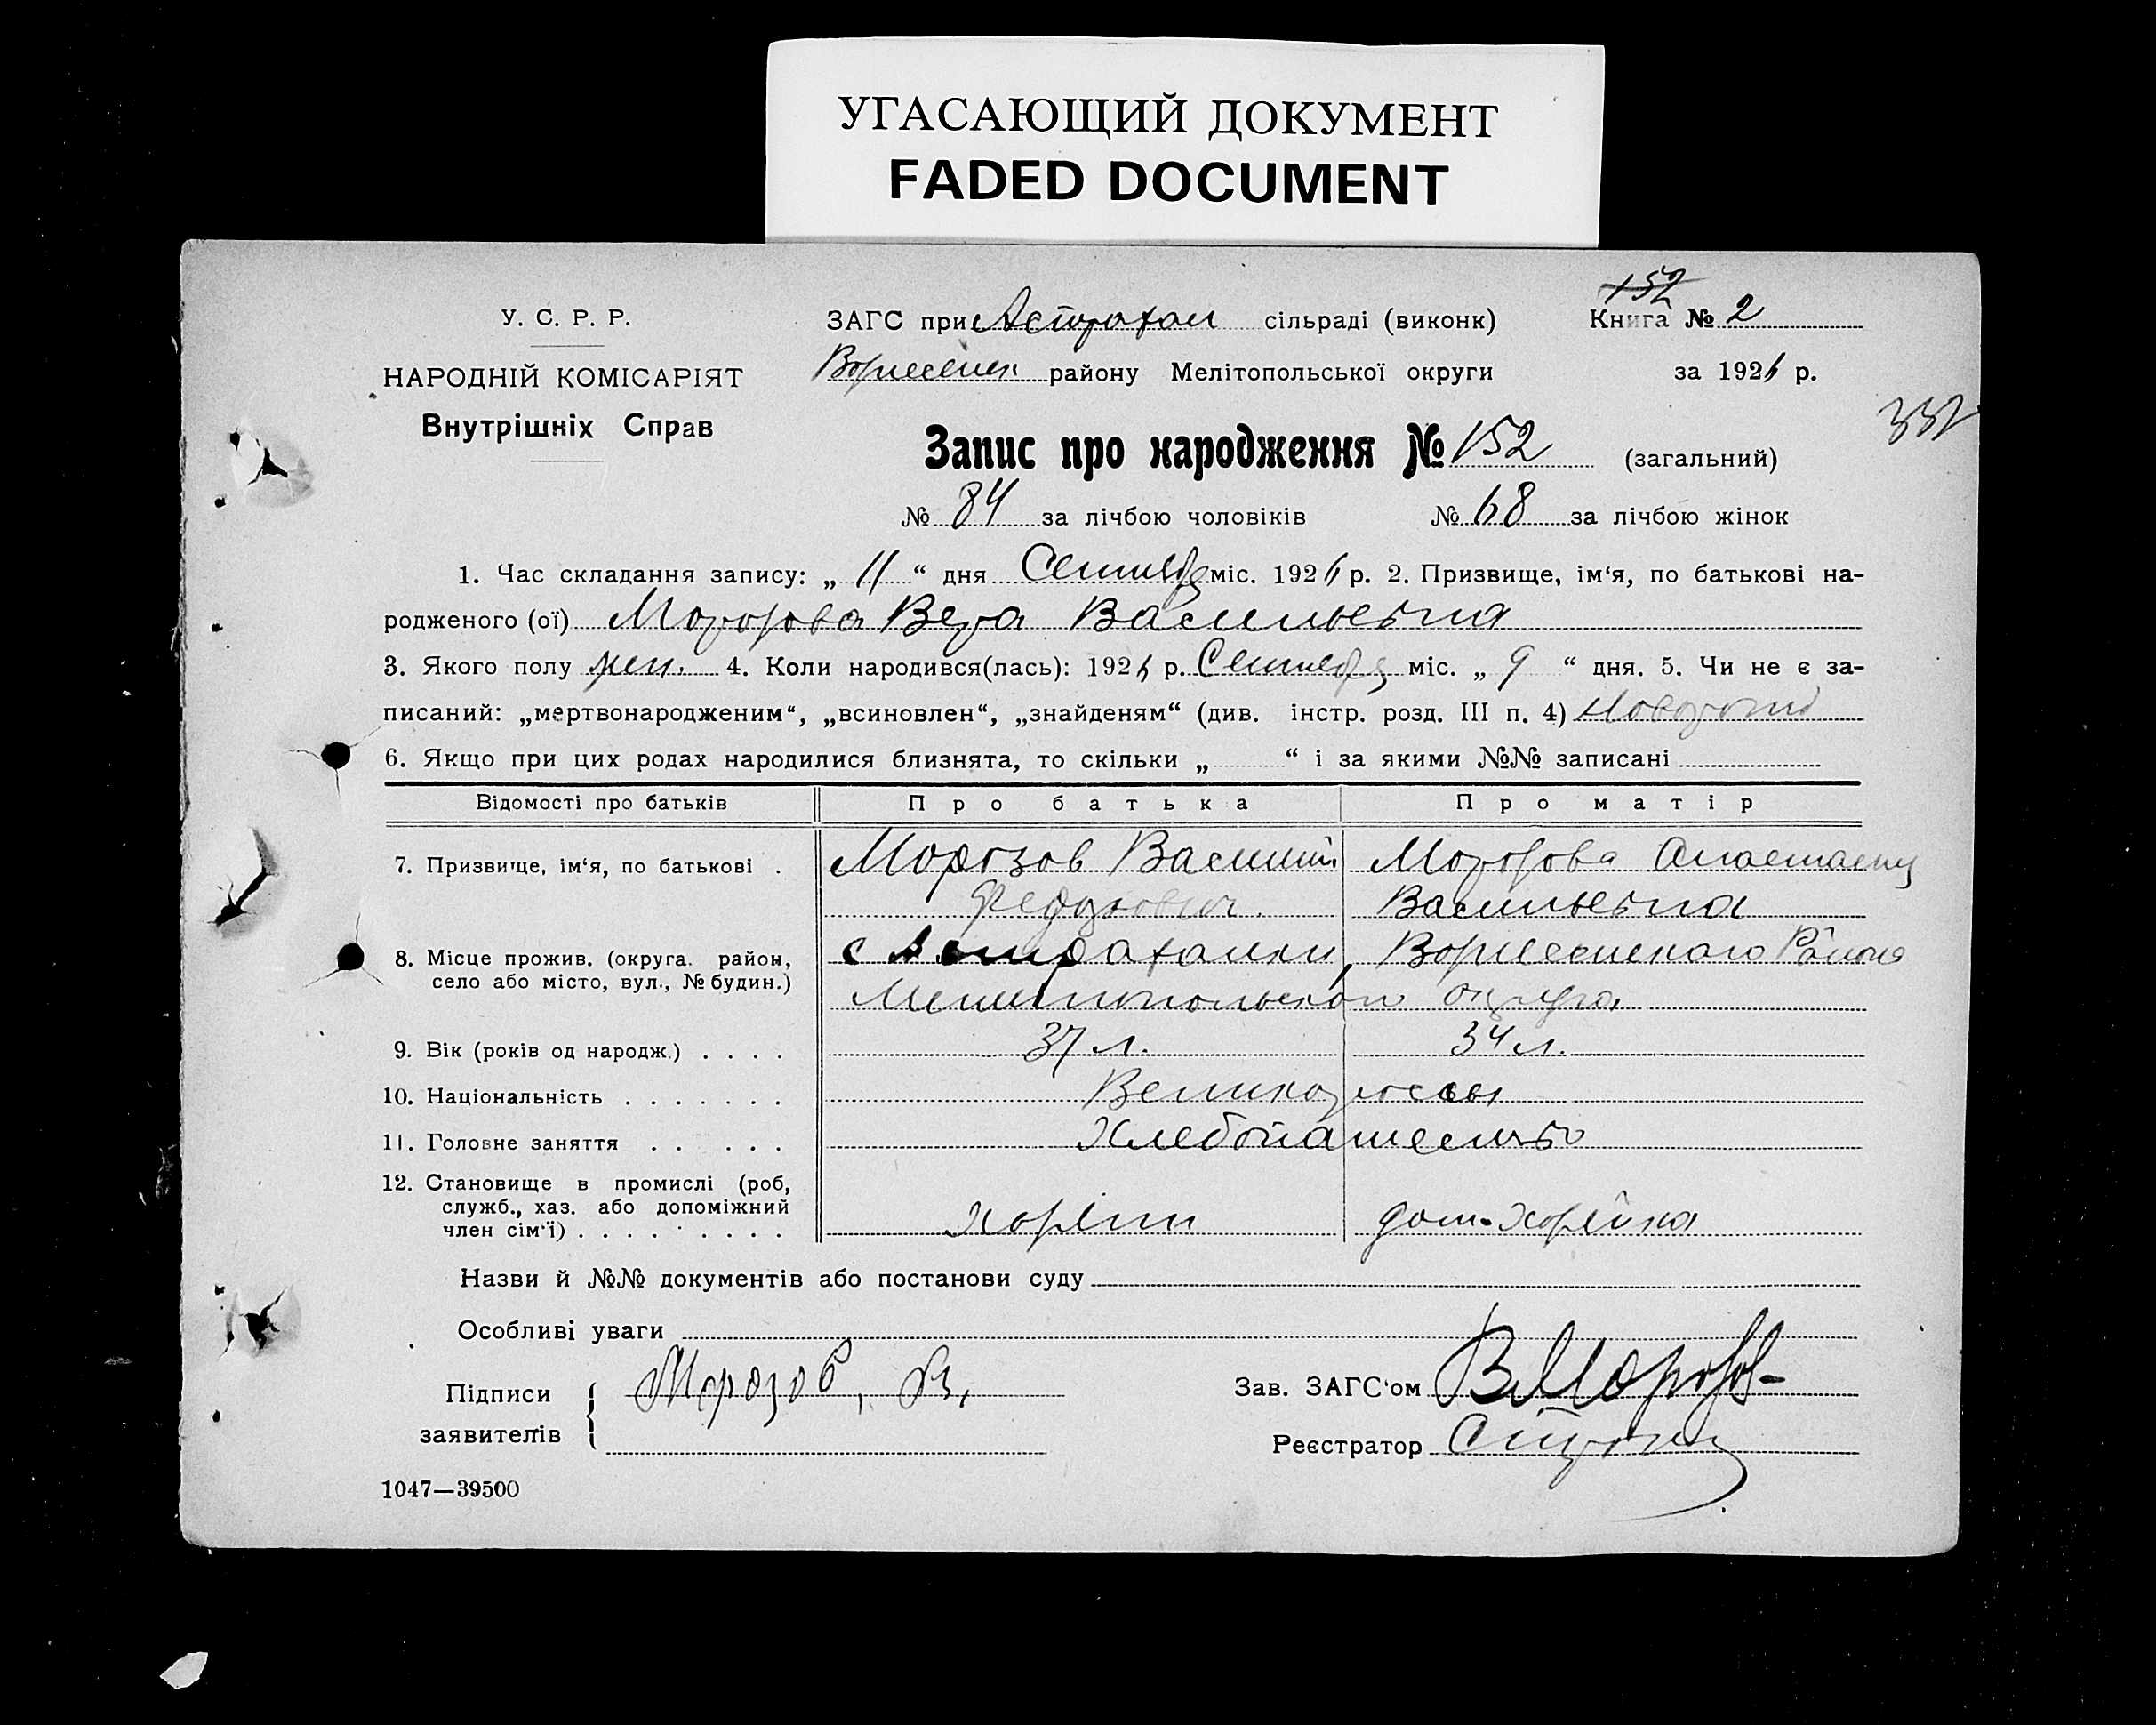 УГАСАЮЩИЙ ДОКУМЕНТ
FADED DOCUMENT
152
У. С. Р. Р.
ЗАГС при Астрахан сільраді (виконк)
Книга № 2
НАРОДНІЙ КОМІСАРІЯТ
Вознесенск. району Мелітопольської округи
за 1926 р.
Внутрішніх Справ
Запис про народження № 152 (загальний)
№ 84 за лічбою чоловіків № 68 за лічбою жінок
1. Час складання запису: „ 11 “ дня Сентября міс. 1926 р. 2. Призвище, ім‘я, по батькові на-
родженого (ої) Морозова Вера Васильевна
3. Якого полу жен. 4. Коли народився(лась): 1926 р. Сентября міс. „ 9 “ дня. 5. Чи не є за-
писаний: „мертвонародженим“, „всиновлен“, „знайденям“ (див. інстр. розд. III п. 4)
6. Якщо при цих родах народилися близнята, то скільки „ “ і за якими №№ записані
Відомості про батьків Про батька Про матір
7. Призвище, ім‘я, по батькові . Морозов Василий Морозова Анастасия
Федорович. Васильевна
8. Місце прожив. (округа. район, с Астраханки, Вознесенского Района
село або місто, вул., № будин.) Мелитопольской округа
9. Вік (років од народж.) . . . . 37 л. 34 л.
10. Національність . . . . . . . Великороссы
11. Головне заняття . . . . . . Хлебопашество
12. Становище в промислі (роб,
служб., хаз. або допоміжний
член сім‘ї) . . . . . . . . хозяин дом-хозяйка
Назви й №№ документів або постанови суду
Особливі уваги
Підписи
заявителів
Морозов, В,
Зав. ЗАГС‘ом ВМорозов
Реєстратор
1047—39500